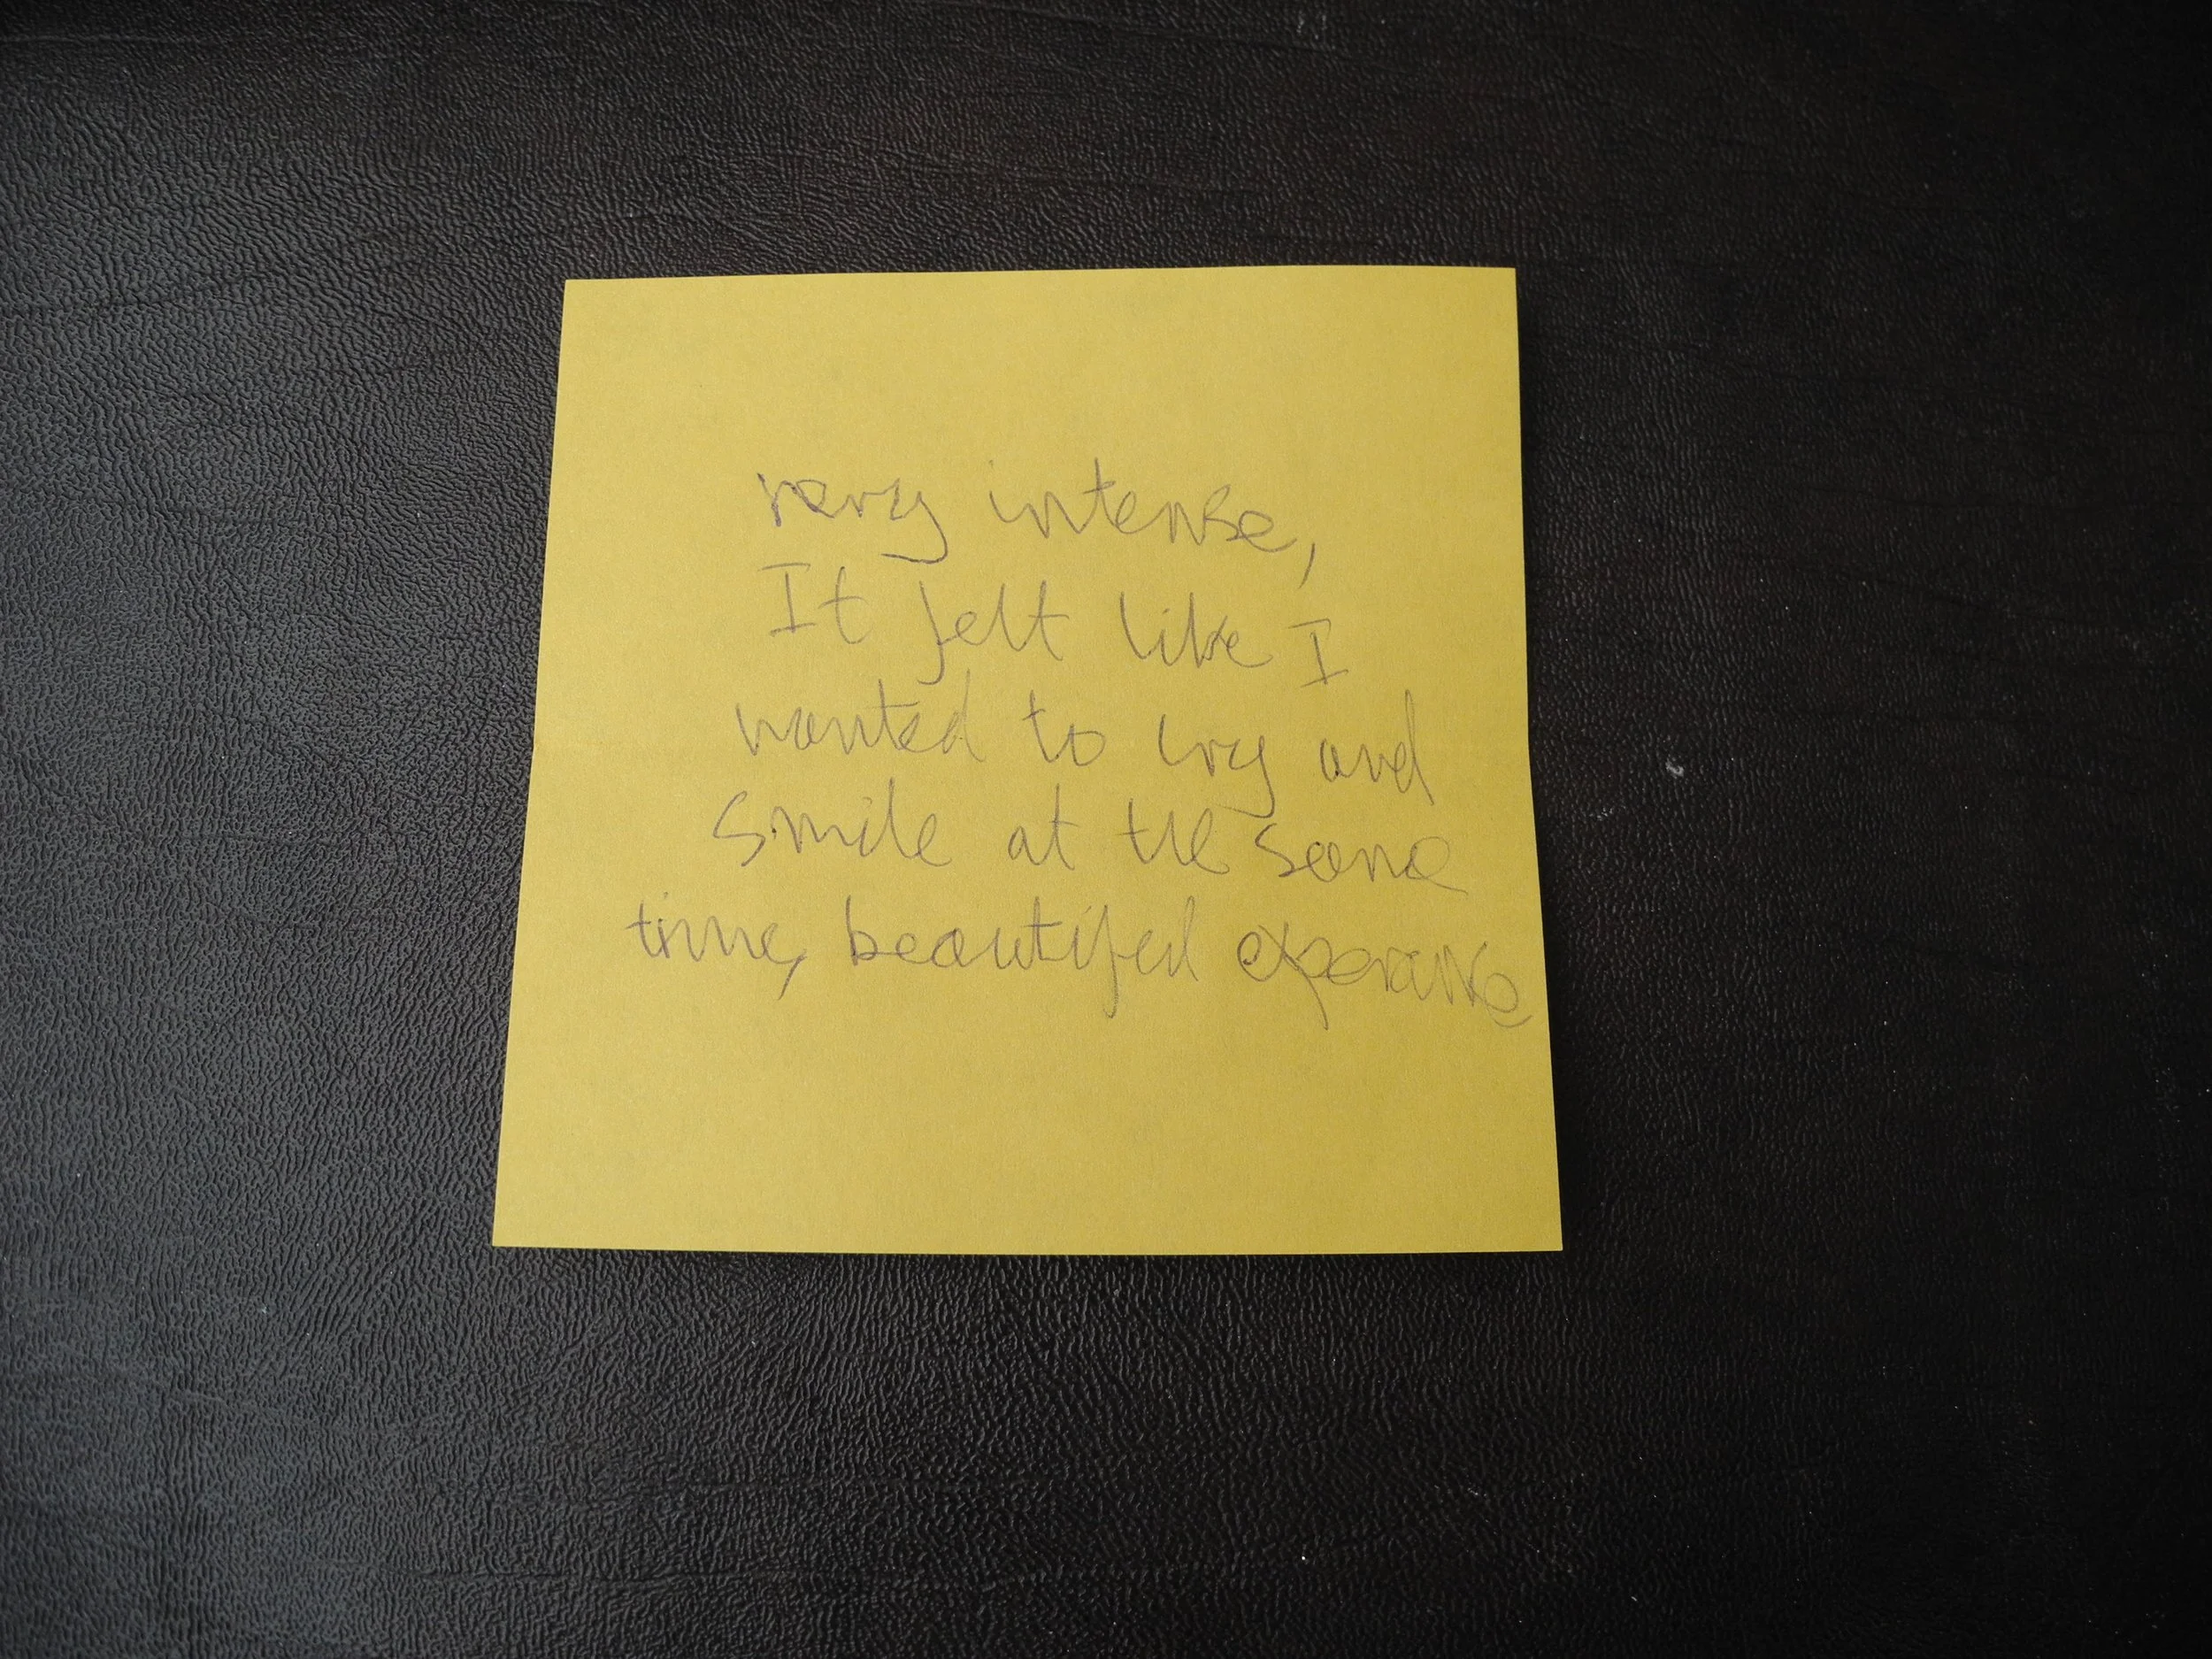 very intense,
It felt like I
wanted to cry and
smile at the same
time, beautiful experience